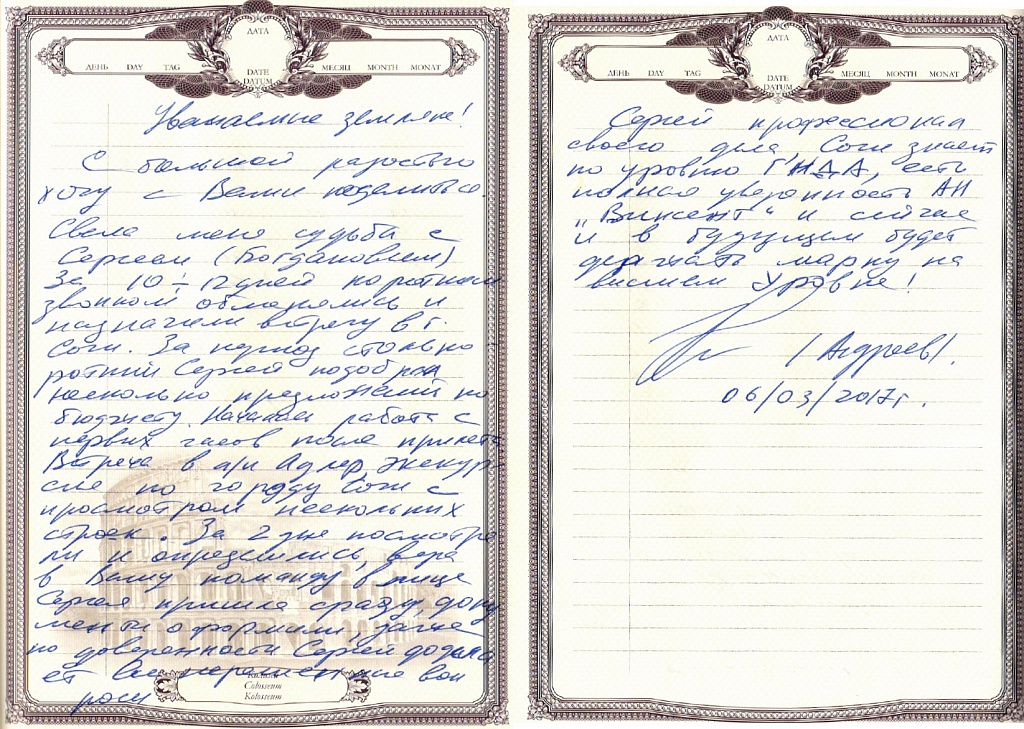 ДАТА
ДЕНЬ DAY TAG DATE DATUM МЕСЯЦ MONTH MONAT
Уважаемые земляки!
С большой радостью
хочу с Вами поделиться.
Свела меня судьба с
Сергеем (Богдановичем)
За 10÷12 дней коротким
звонком обменялись и
назначили встречу в г.
Сочи. За период столь ко-
роткий Сергей подобрал
несколько предложений по
бюджету. Начали работа с
первых часов после прилета
Встреча в а/п Адлер, экскур-
сия по городу Сочи с
просмотром нескольких
строек. За 2 дня посмотре
ли и определились, вера
в Вашу команду в лице
Сергея пришла сразу, доку
менты оформили, далее
по доверенности Сергей додела
ет все нерешенные воп
росы
Colosseum
Kolosseum
ДАТА
ДЕНЬ DAY TAG DATE DATUM МЕСЯЦ MONTH MONAT
Сергей профессионал
своего дела, Сочи знает
по уровню ГИДА, есть
полная уверенность АН
„Винсент“ и сейчас
и в будущем будет
держать марку на
высшем Уровне!
(Андреев).
06/03/2017г.